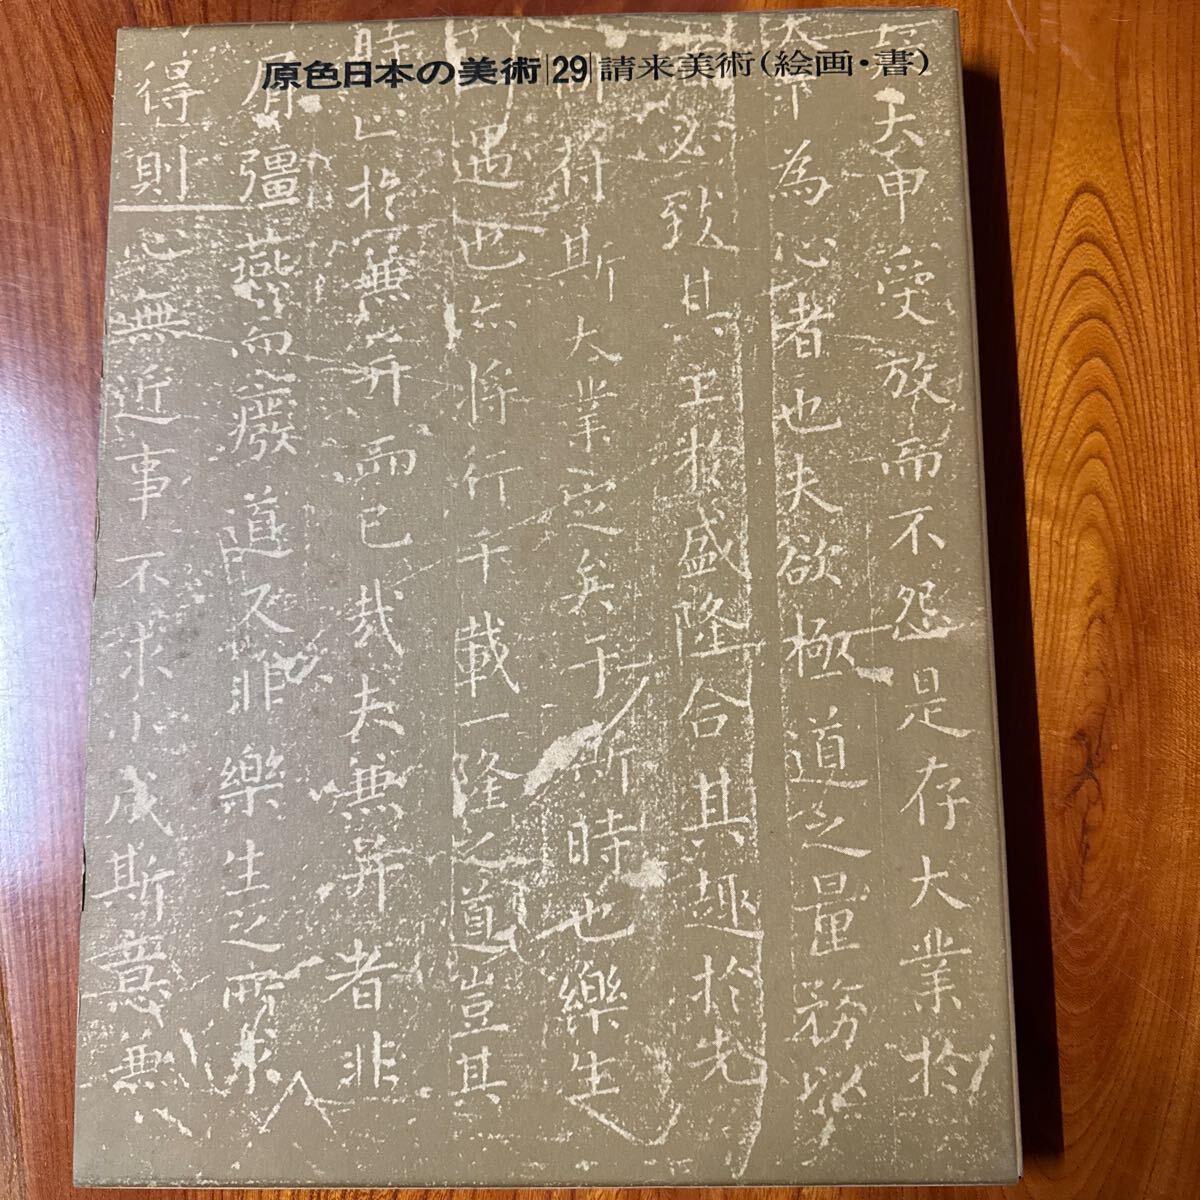 原色日本の美術|29|請来美術(絵画・書)
天甲受放而不怨是存大業於
為心者也夫欲極道之量務以
必致其主於盛隆合其趣於先
符斯大業定矣于斯時也樂生
遇也亦將行千載一隆之道豈其
時止於兼并而已哉夫兼并者非
屑彊燕而廢道又非樂生之所求
得則心無近事不求小成斯意兼